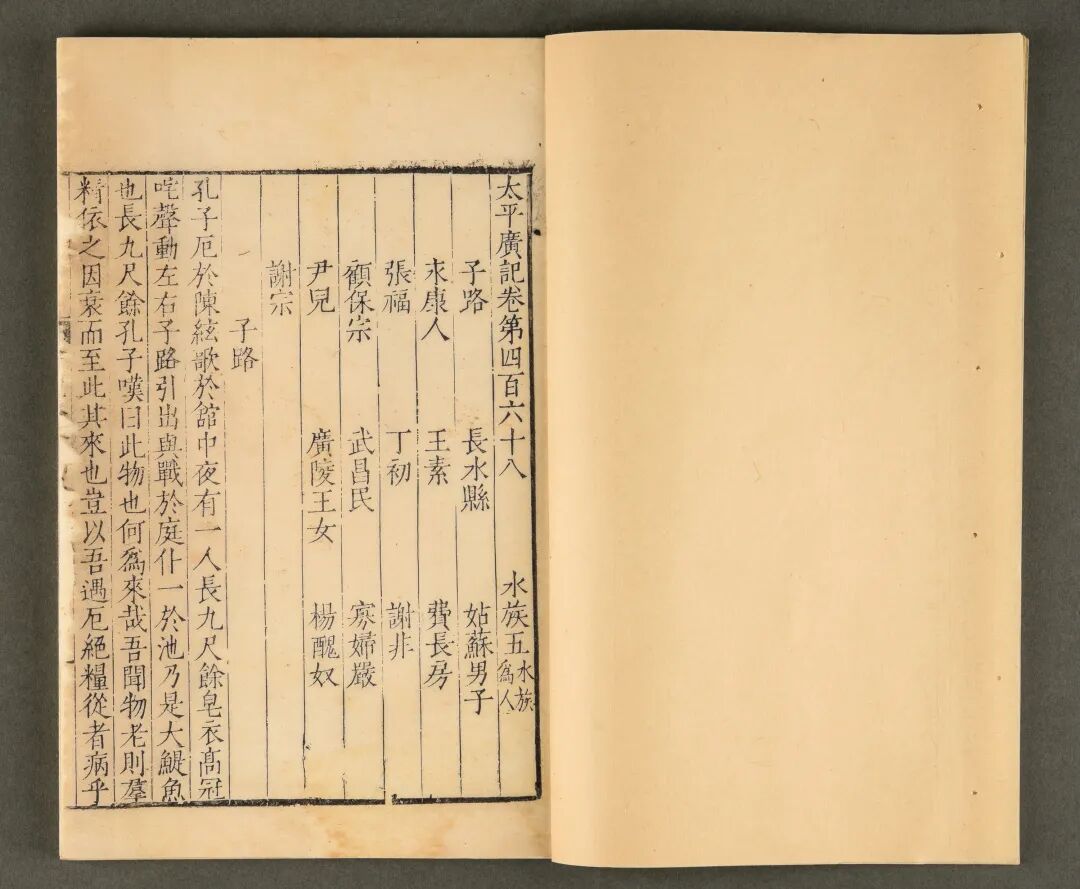 太平廣記卷第四百六十八 水族五 水族爲人
子路 長水縣 姑蘇男子
永康人 王素 費長房
張福 丁初 謝非
顧保宗 武昌民 寡婦嚴
尹兒 廣陵王女 楊醜奴
謝宗
子路
孔子厄於陳絃歌於館中夜有一人長九尺餘皂衣髙冠
咤聲動左右子路引出與戰於庭仆一於池乃是大鯷魚
也長九尺餘孔子嘆曰此物也何爲來哉吾聞物老則羣
精依之因衰而至此其來也豈以吾遇厄絕糧從者病乎